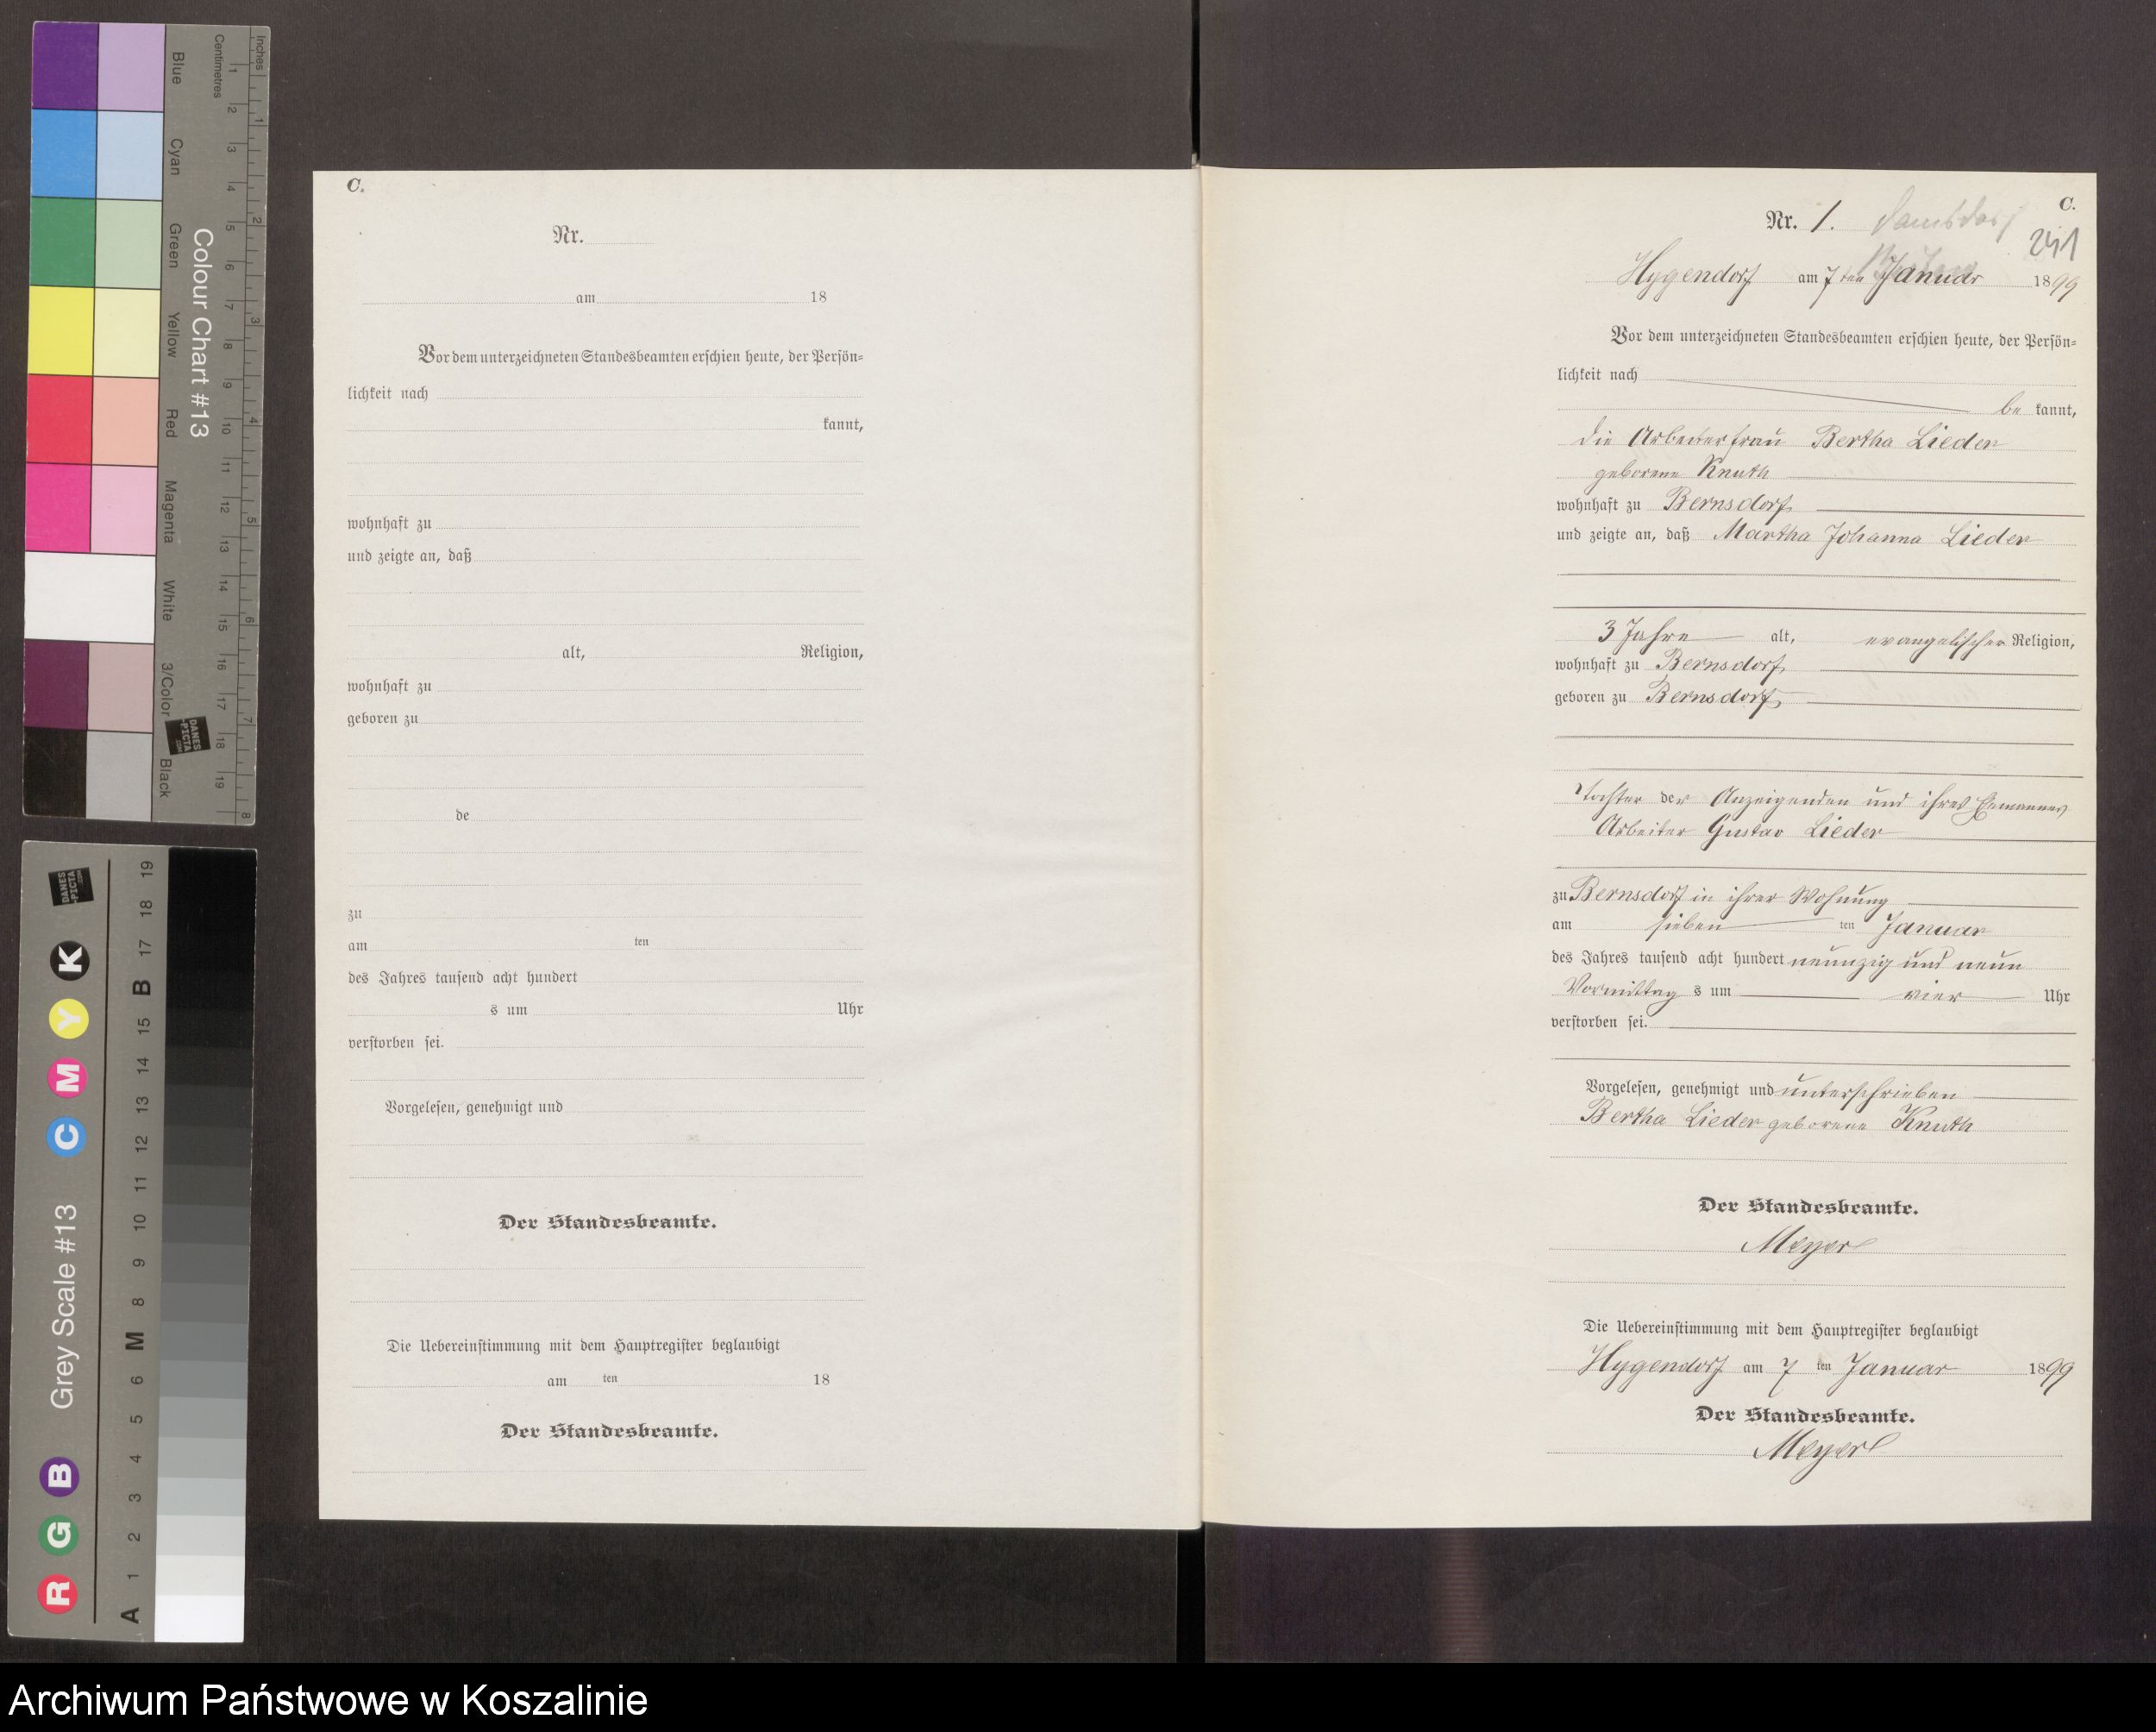 Inches
Centimetres
1 2 3 4 5 6 7 8 9 10 11 12 13 14 15 16 17 18 19
1 2 3 4 5 6 7 8
Blue
Cyan
Green
Yellow
Red
Magenta
White
3/Color
Black
Colour Chart #13
DANES
-PICTA
.COM
Grey Scale #13
R G B C M Y K
DANES
-PICTA
.COM
A 1 2 3 4 5 6 M 8 9 10 11 12 13 14 15 B 17 18 19
C.
Nr.
am 18
Vor dem unterzeichneten Standesbeamten erschien heute, der Persön-
lichkeit nach
kannt,
wohnhaft zu
und zeigte an, daß
alt, Religion,
wohnhaft zu
geboren zu
de
zu
am ten
des Jahres tausend acht hundert
s um Uhr
verstorben sei.
Vorgelesen, genehmigt und
Der Standesbeamte.
Die Uebereinstimmung mit dem Hauptregister beglaubigt
am ten 18
Der Standesbeamte.
C.
Nr. 1. Damsdorf
241
Hygendorf am 7 ten Januar 1899
Vor dem unterzeichneten Standesbeamten erschien heute, der Persön-
lichkeit nach
be kannt,
die Arbeiterfrau Bertha Lieder
geborene Knuth
wohnhaft zu Bernsdorf
und zeigte an, daß Martha Johanna Lieder
3 Jahre alt, evangelischer Religion,
wohnhaft zu Bernsdorf
geboren zu Bernsdorf
Tochter der Anzeigenden und ihres Ehemannes
Arbeiter Gustav Lieder
zu Bernsdorf in ihrer Wohnung
am sieben ten Januar
des Jahres tausend acht hundert neunzig und neun
Vormittag s um vier Uhr
verstorben sei.
Vorgelesen, genehmigt und unterschrieben
Bertha Lieder geborene Knuth
Der Standesbeamte.
Meyer
Die Uebereinstimmung mit dem Hauptregister beglaubigt
Hygendorf am 7 ten Januar 1899
Der Standesbeamte.
Meyer
Archiwum Państwowe w Koszalinie